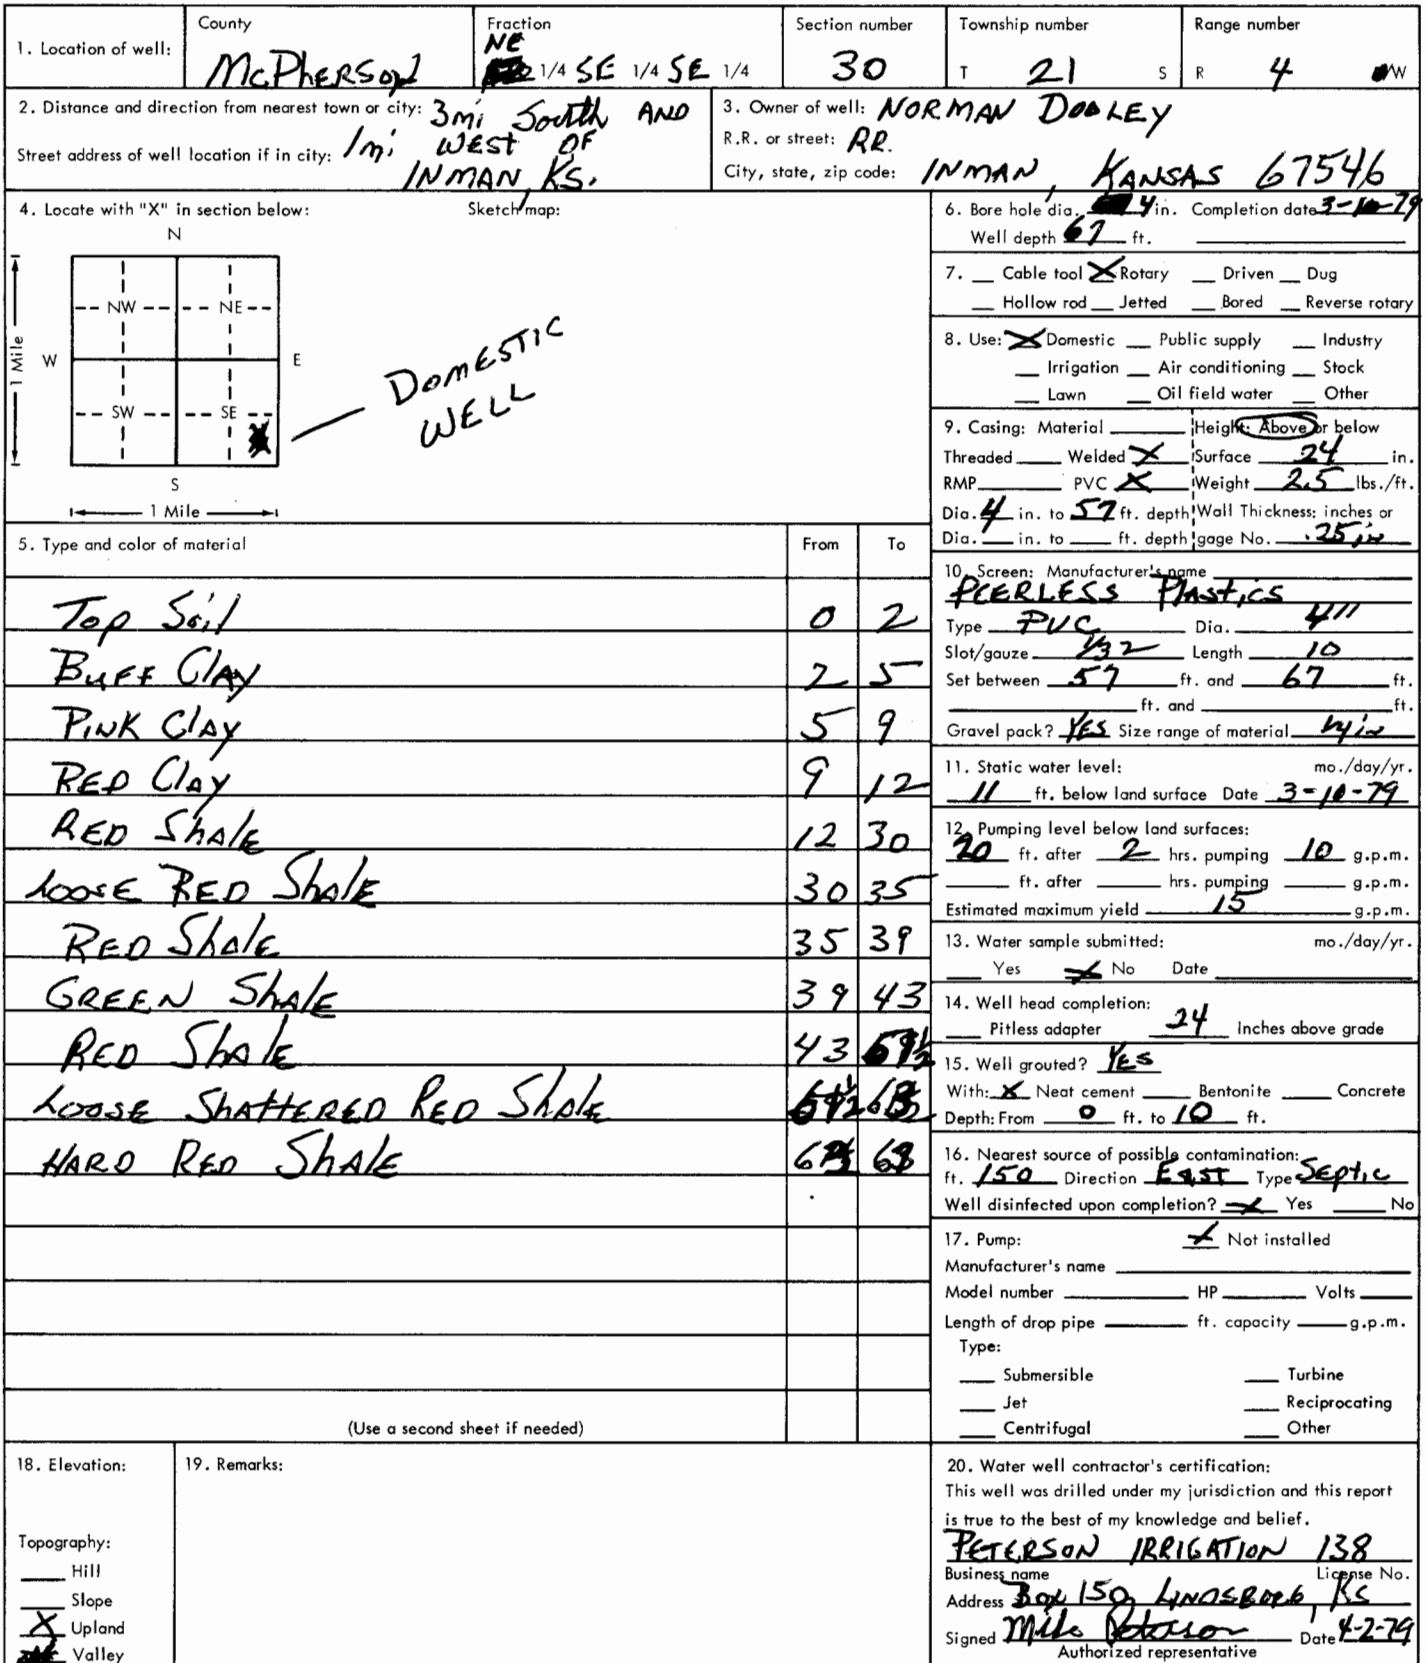 1. Location of well: County McPherson Fraction NE 1/4 SE 1/4 SE 1/4 Section number 30 Township number T 21 S Range number R 4 W
2. Distance and direction from nearest town or city: 3mi South AND
Street address of well location if in city: 1mi WEST OF
INMAN, KS.
3. Owner of well: NORMAN DOOLEY
R.R. or street: RR.
City, state, zip code: INMAN, KANSAS 67546
4. Locate with "X" in section below: Sketch map:
N
NW NE
W E
1 Mile
SW SE
S
1 Mile
DOMESTIC
WELL
6. Bore hole dia. in. Completion date 3-10-79
Well depth 67 ft.
7. Cable tool X Rotary Driven Dug
Hollow rod Jetted Bored Reverse rotary
8. Use: X Domestic Public supply Industry
Irrigation Air conditioning Stock
Lawn Oil field water Other
9. Casing: Material Height: Above or below
Threaded Welded X Surface 24 in.
RMP PVC X Weight 2.5 lbs./ft.
Dia. 4 in. to 57 ft. depth Wall Thickness: inches or
Dia. in. to ft. depth gage No. .25 in
5. Type and color of material From To
Top Soil 0 2
BUFF Clay 2 5
PINK Clay 5 9
RED Clay 9 12
RED Shale 12 30
LOOSE RED Shale 30 35
RED Shale 35 39
GREEN Shale 39 43
RED Shale 43
LOOSE SHATTERED RED Shale
HARD RED Shale
(Use a second sheet if needed)
10. Screen: Manufacturer's name
PEERLESS PLASTICS
Type PVC Dia. 4"
Slot/gauze 1/32 Length 10
Set between 57 ft. and 67 ft.
ft. and ft.
Gravel pack? YES Size range of material
11. Static water level: mo./day/yr.
11 ft. below land surface Date 3-10-79
12. Pumping level below land surfaces:
20 ft. after 2 hrs. pumping 10 g.p.m.
ft. after hrs. pumping g.p.m.
Estimated maximum yield 15 g.p.m.
13. Water sample submitted: mo./day/yr.
Yes X No Date
14. Well head completion:
Pitless adapter 24 Inches above grade
15. Well grouted? YES
With: X Neat cement Bentonite Concrete
Depth: From 0 ft. to 10 ft.
16. Nearest source of possible contamination:
ft. 150 Direction EAST Type Septic
Well disinfected upon completion? X Yes No
17. Pump: X Not installed
Manufacturer's name
Model number HP Volts
Length of drop pipe ft. capacity g.p.m.
Type:
Submersible Turbine
Jet Reciprocating
Centrifugal Other
18. Elevation:
Topography:
Hill
Slope
X Upland
Valley
19. Remarks:
20. Water well contractor's certification:
This well was drilled under my jurisdiction and this report
is true to the best of my knowledge and belief.
PETERSON IRRIGATION 138
Business name License No.
Address Box 150, LINDSBORG, KS
Signed Mike Peterson Date 4-2-79
Authorized representative